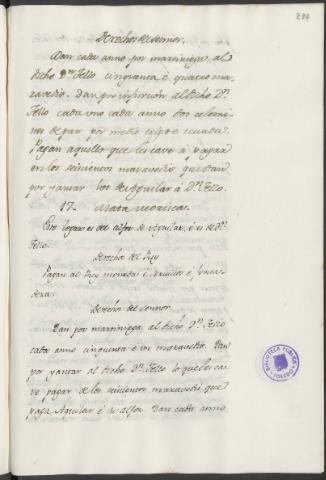 290
Derechos del Sennor.
Dan cada anno por martiniega al
dicho Dn. Tello cinquenta é quatro ma-
ravedis. Dan por infurcion al dicho Dn.
Tello cada uno cada anno dos celemi-
nes de pan por medio trigo é cevada.
Pagan aquello que les cave á pagar
en los seiscientos maravedis que dan
por yantar los de Aguilar á Dn. Tello.
17. Mata moriscas.
Este logar es del alfoz de Aguilar, é es de Dn.
Tello.
Derechos del Rey
Pagan al Rey monedas é servicios é fonsa-
dera.
Derechos del sennor
Dan por martiniega al dicho Dn. Tello
cada anno cinquenta é maravedis. Dan
por yantar al dicho Dn. Tello lo que les ca-
ve pagar de los seiscientos maravedis que
paga Aguilar é su alfoz. Dan cada anno
BIBLIOTECA PUBLICA
TOLEDO